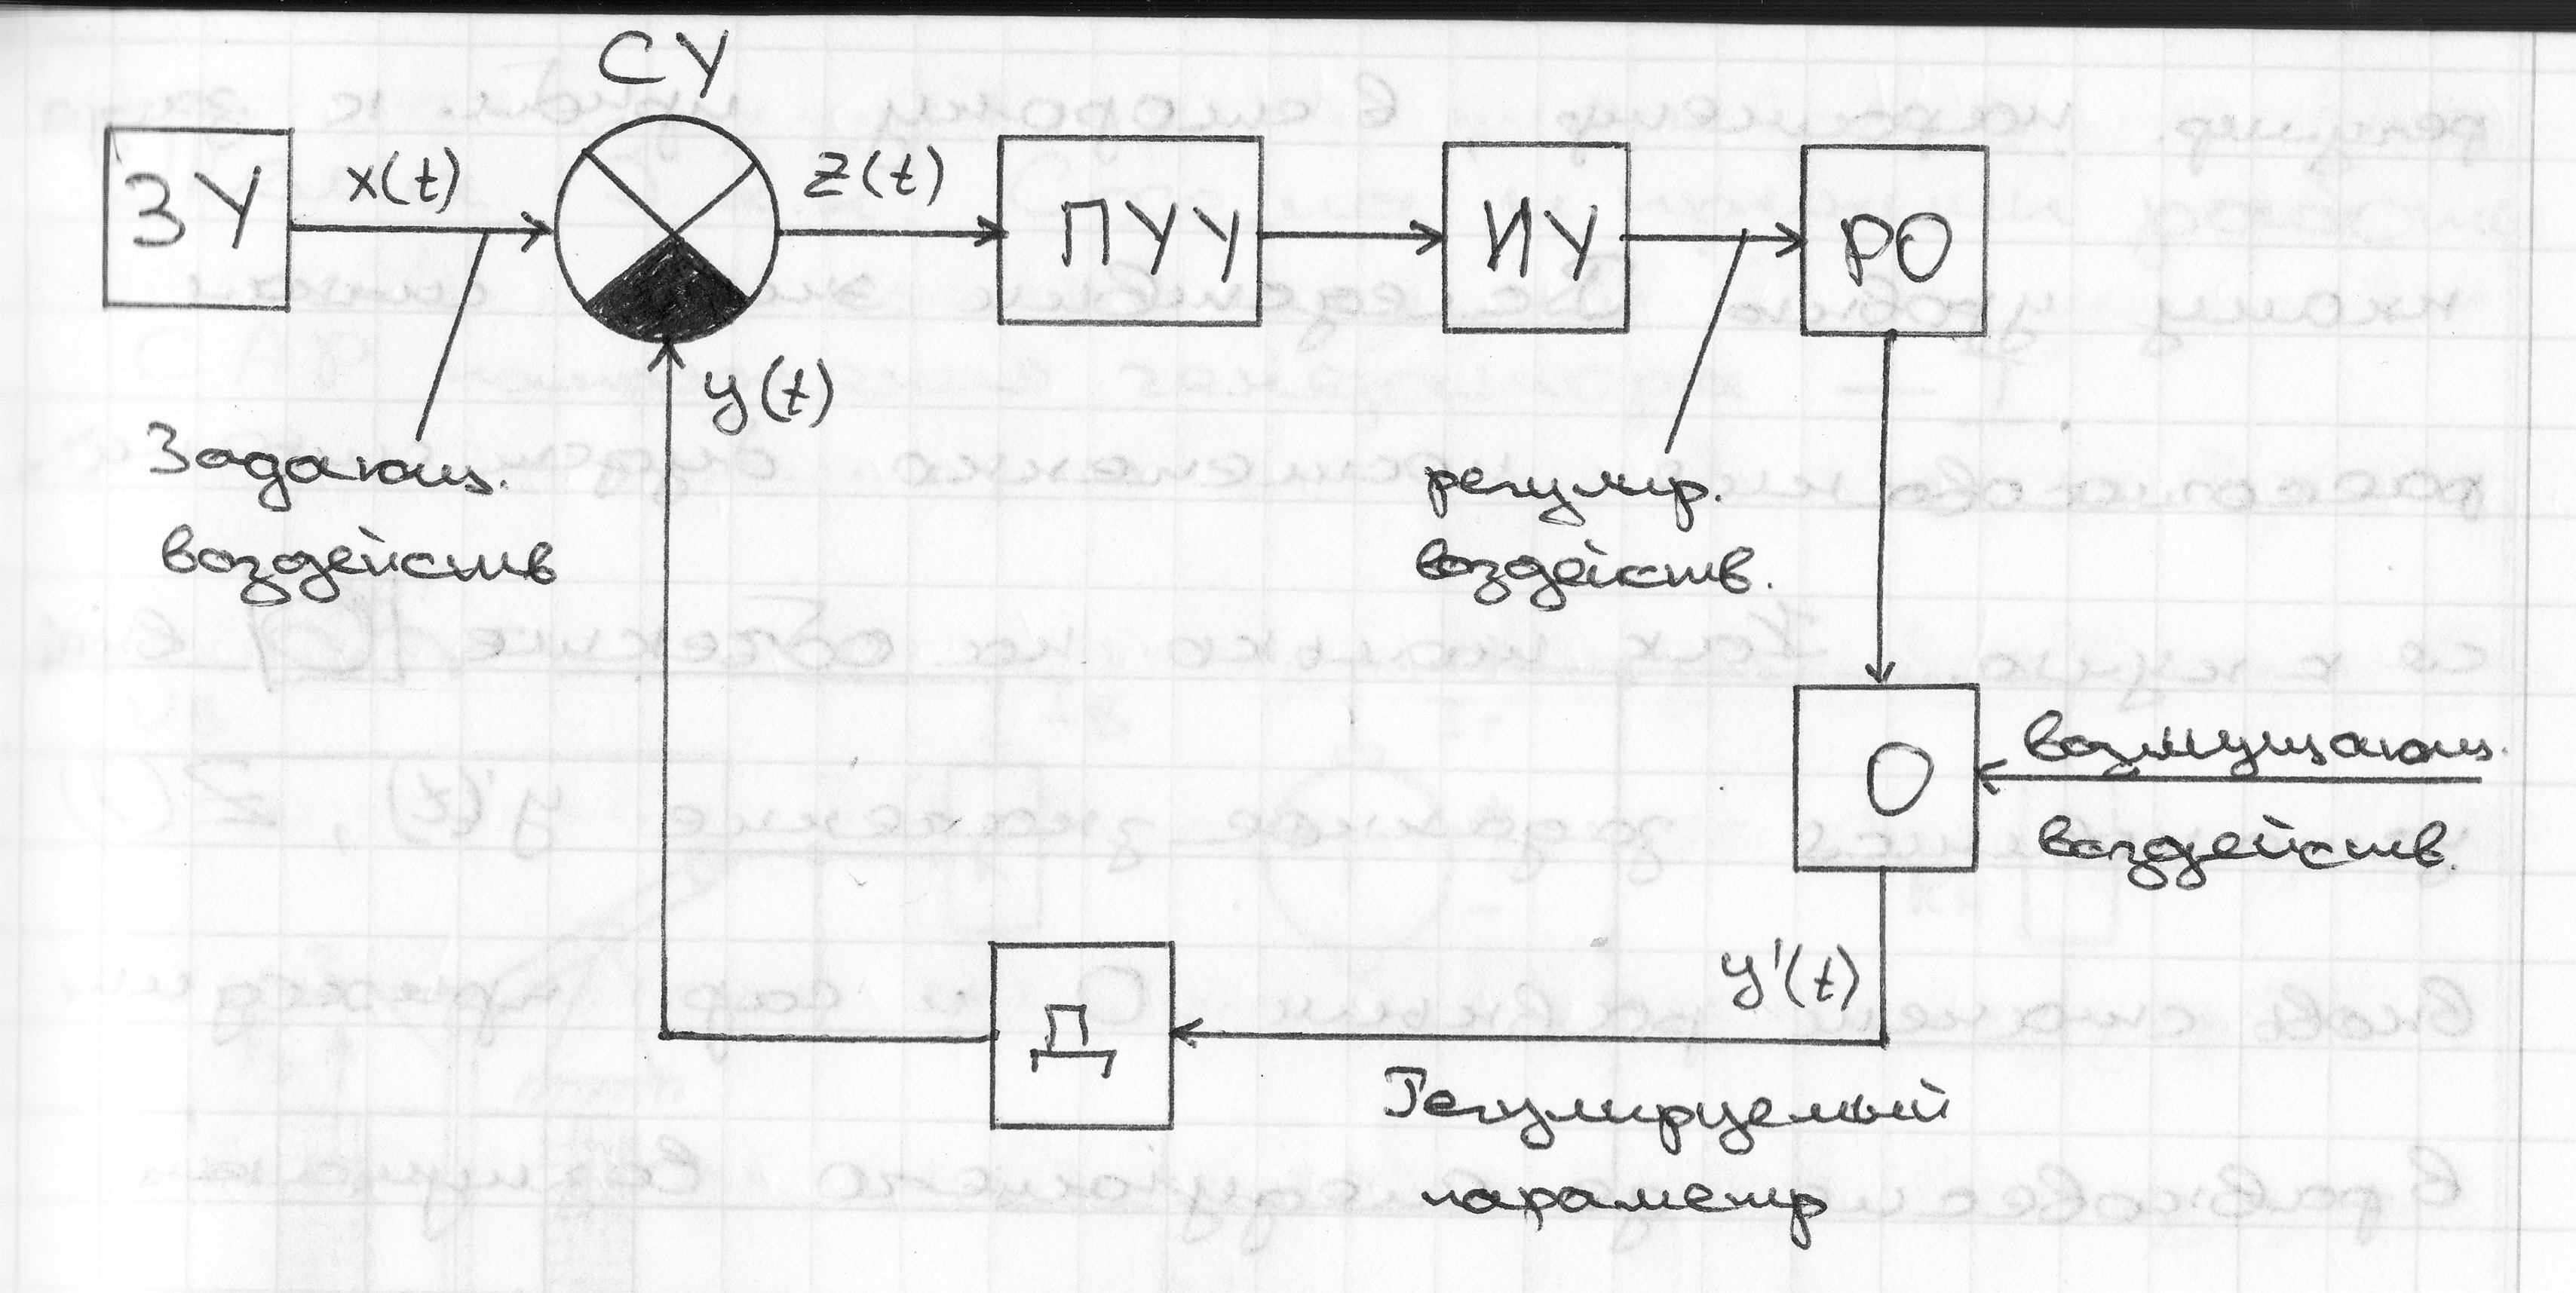 СУ
ЗУ
x(t)
z(t)
ПУУ
ИУ
РО
y(t)
Задающ.
воздейств
регулир.
воздейств.
О
возмущающ.
воздейств.
y'(t)
Д
Регулируемый
параметр